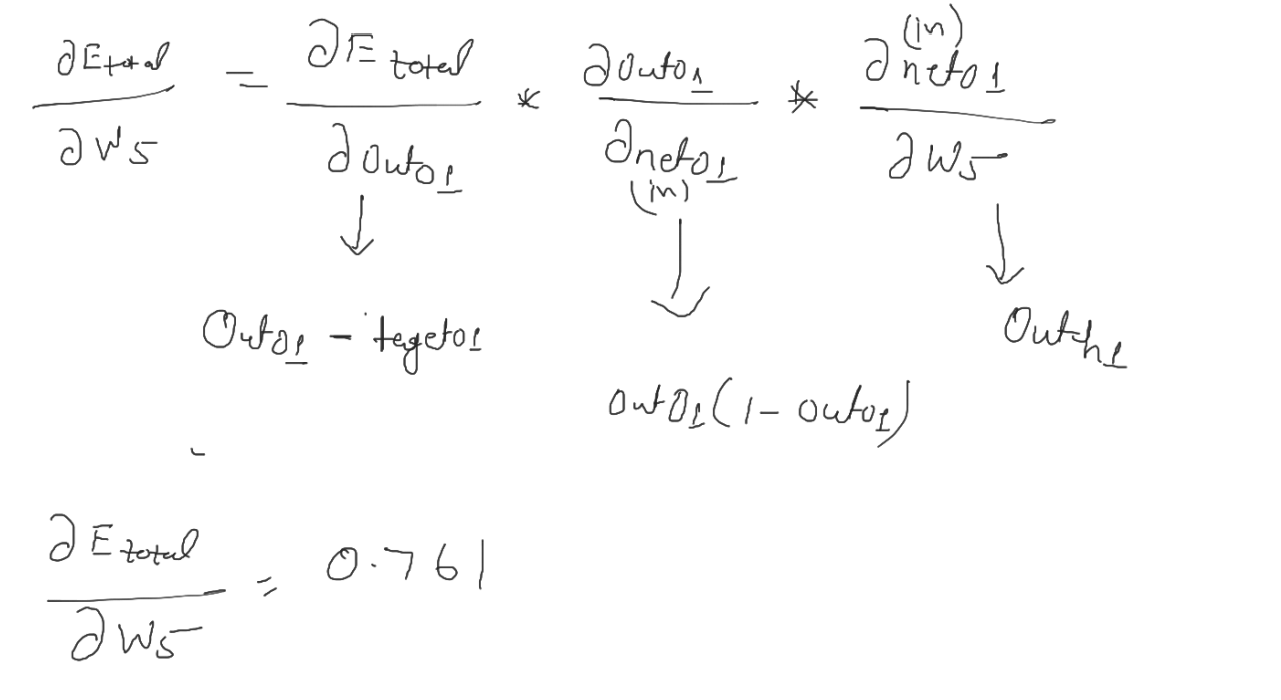 ∂Etotal/∂W5 = ∂Etotal/∂Outo1 * ∂Outo1/∂neto1 (in) * ∂neto1 (in)/∂W5
↓ ↓ ↓
Outo1 - tegeto1
outo1(1 - outo1)
Outh1
∂Etotal/∂W5 = 0.761